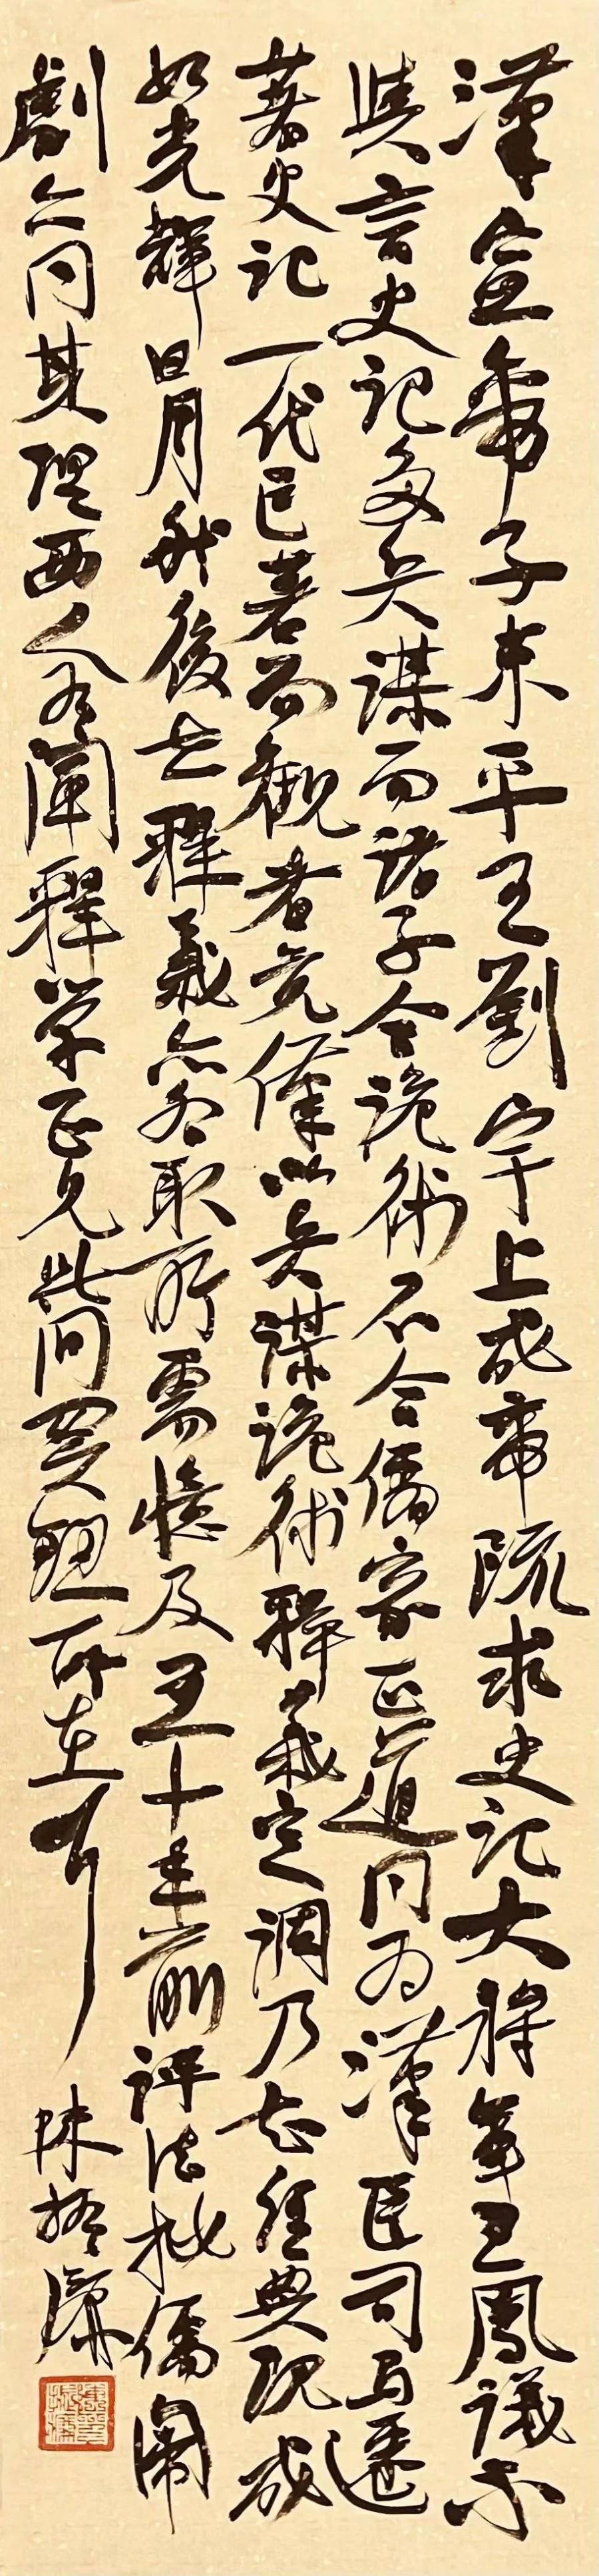 漢宣帝子東平王劉宇上成帝疏求史記大將軍王鳳議不
與言史記多兵謀而諸子含詭術不合儒家正道同為漢臣司馬遷
著史記一代巨著而觀者竟僅以兵謀詭術釋義定調乃知經典既成
如光輝日月然後世釋義亦各取所需憶及五十年前評法批儒鬧
劇亦同其理西人有闡釋學正見此問題所在耳
陳振濂